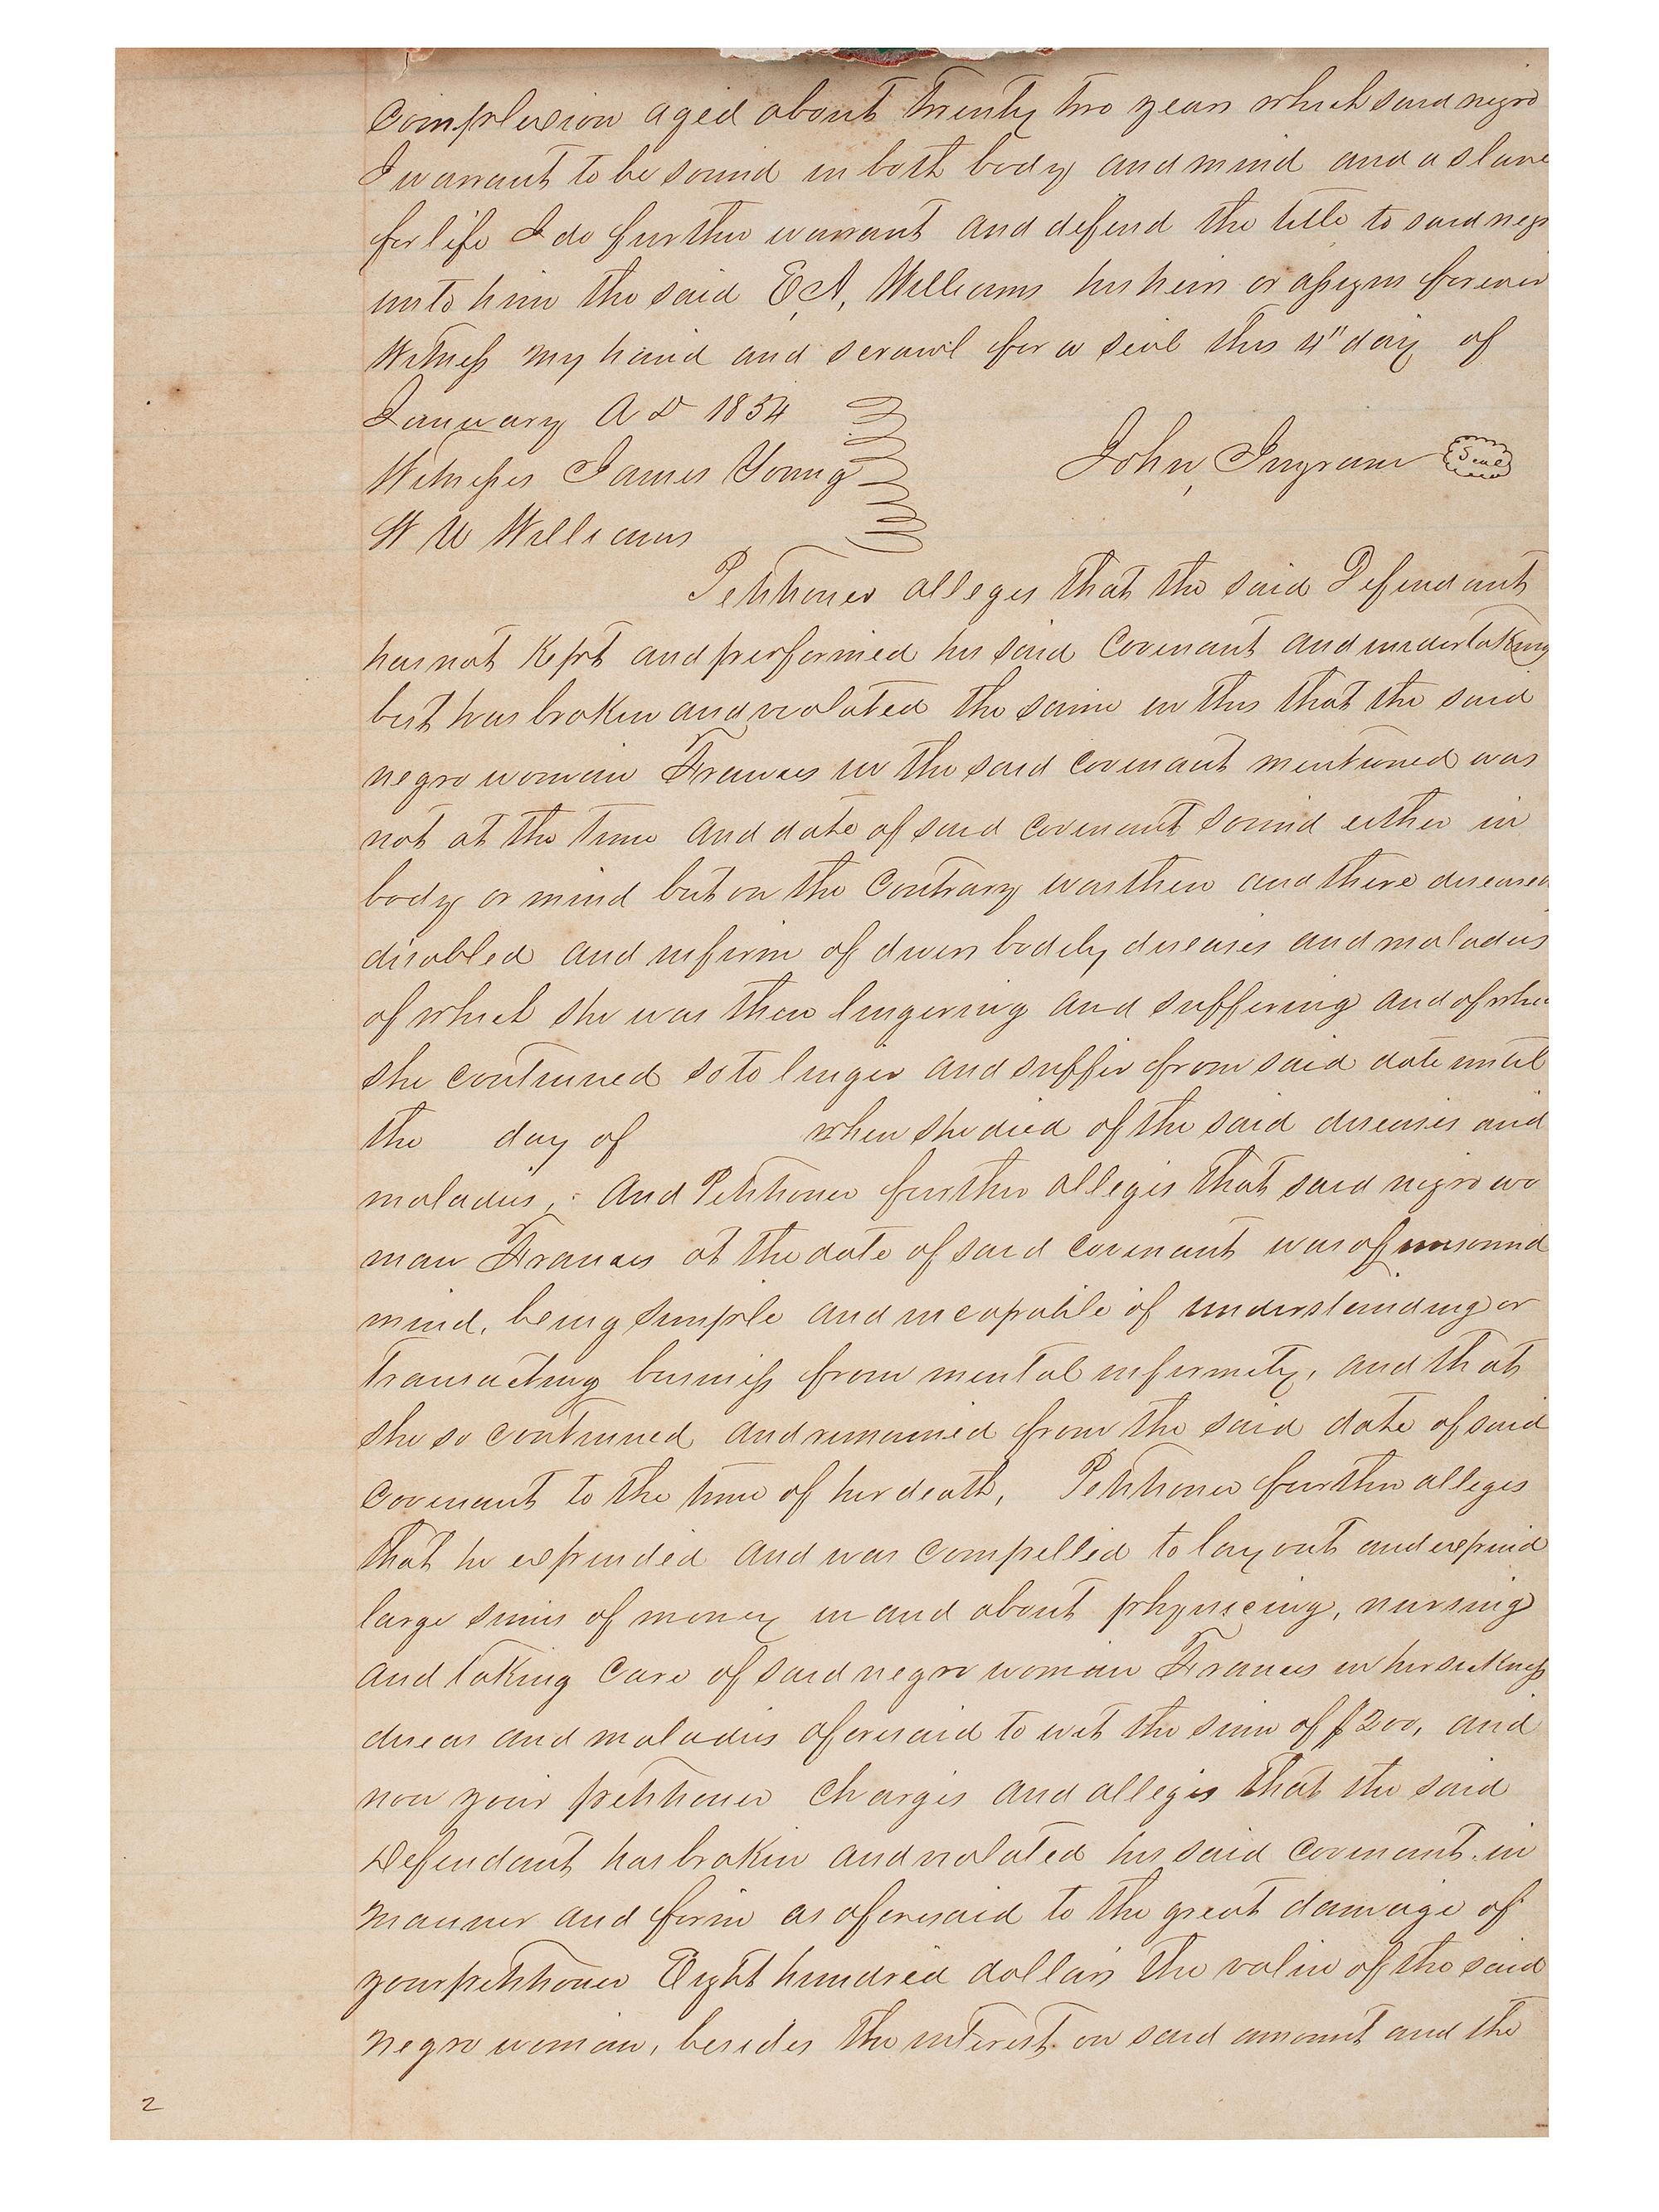 complexion aged about twenty two years which said negro
I warrant to be sound in both body and mind and a slave
for life I do further warrant and defend the title to said negr
unto him the said E, A, Williams his heirs or assigns forever
Witness my hand and scrawl for a seal this 4" day of
January A D 1854
John, Ingram Seal
Witnesses James Young
W W Williams
Petitioner alleges that the said Defendant
has not Kept and performed his said Covenant and undertaking
but has broken and violated the same in this that the said
negro woman Frances in the said covenant mentioned was
not at the time and date of said covenant sound either in
body or mind but on the Contrary was then and there diseased
disabled and infirm of divers bodily diseases and maladies
of which she was then lingering and suffering and of whic
she continued so to linger and suffer from said date until
the day of when she died of the said diseases and
maladies, And Petitioner further alleges that said negro wo
man Frances at the date of said covenant was of unsound
mind, being simple and incapable of understanding or
transacting business from mental infirmity, and that
she so continued and remained from the said date of said
covenant to the time of her death, Petitioner further alleges
that he expended and was compelled to lay out and expend
large sums of money in and about physicing, nursing
and taking care of said negro woman Frances in her sickness
diseas and maladies aforesaid to wit the sum of $200, and
now your petitioner charges and alleges that the said
Defendant has broken and violated his said covenant in
manner and form as aforesaid to the great damage of
your petitioner Eight hundred dollars the value of the said
negro woman, besides the interest on said amount and the
2